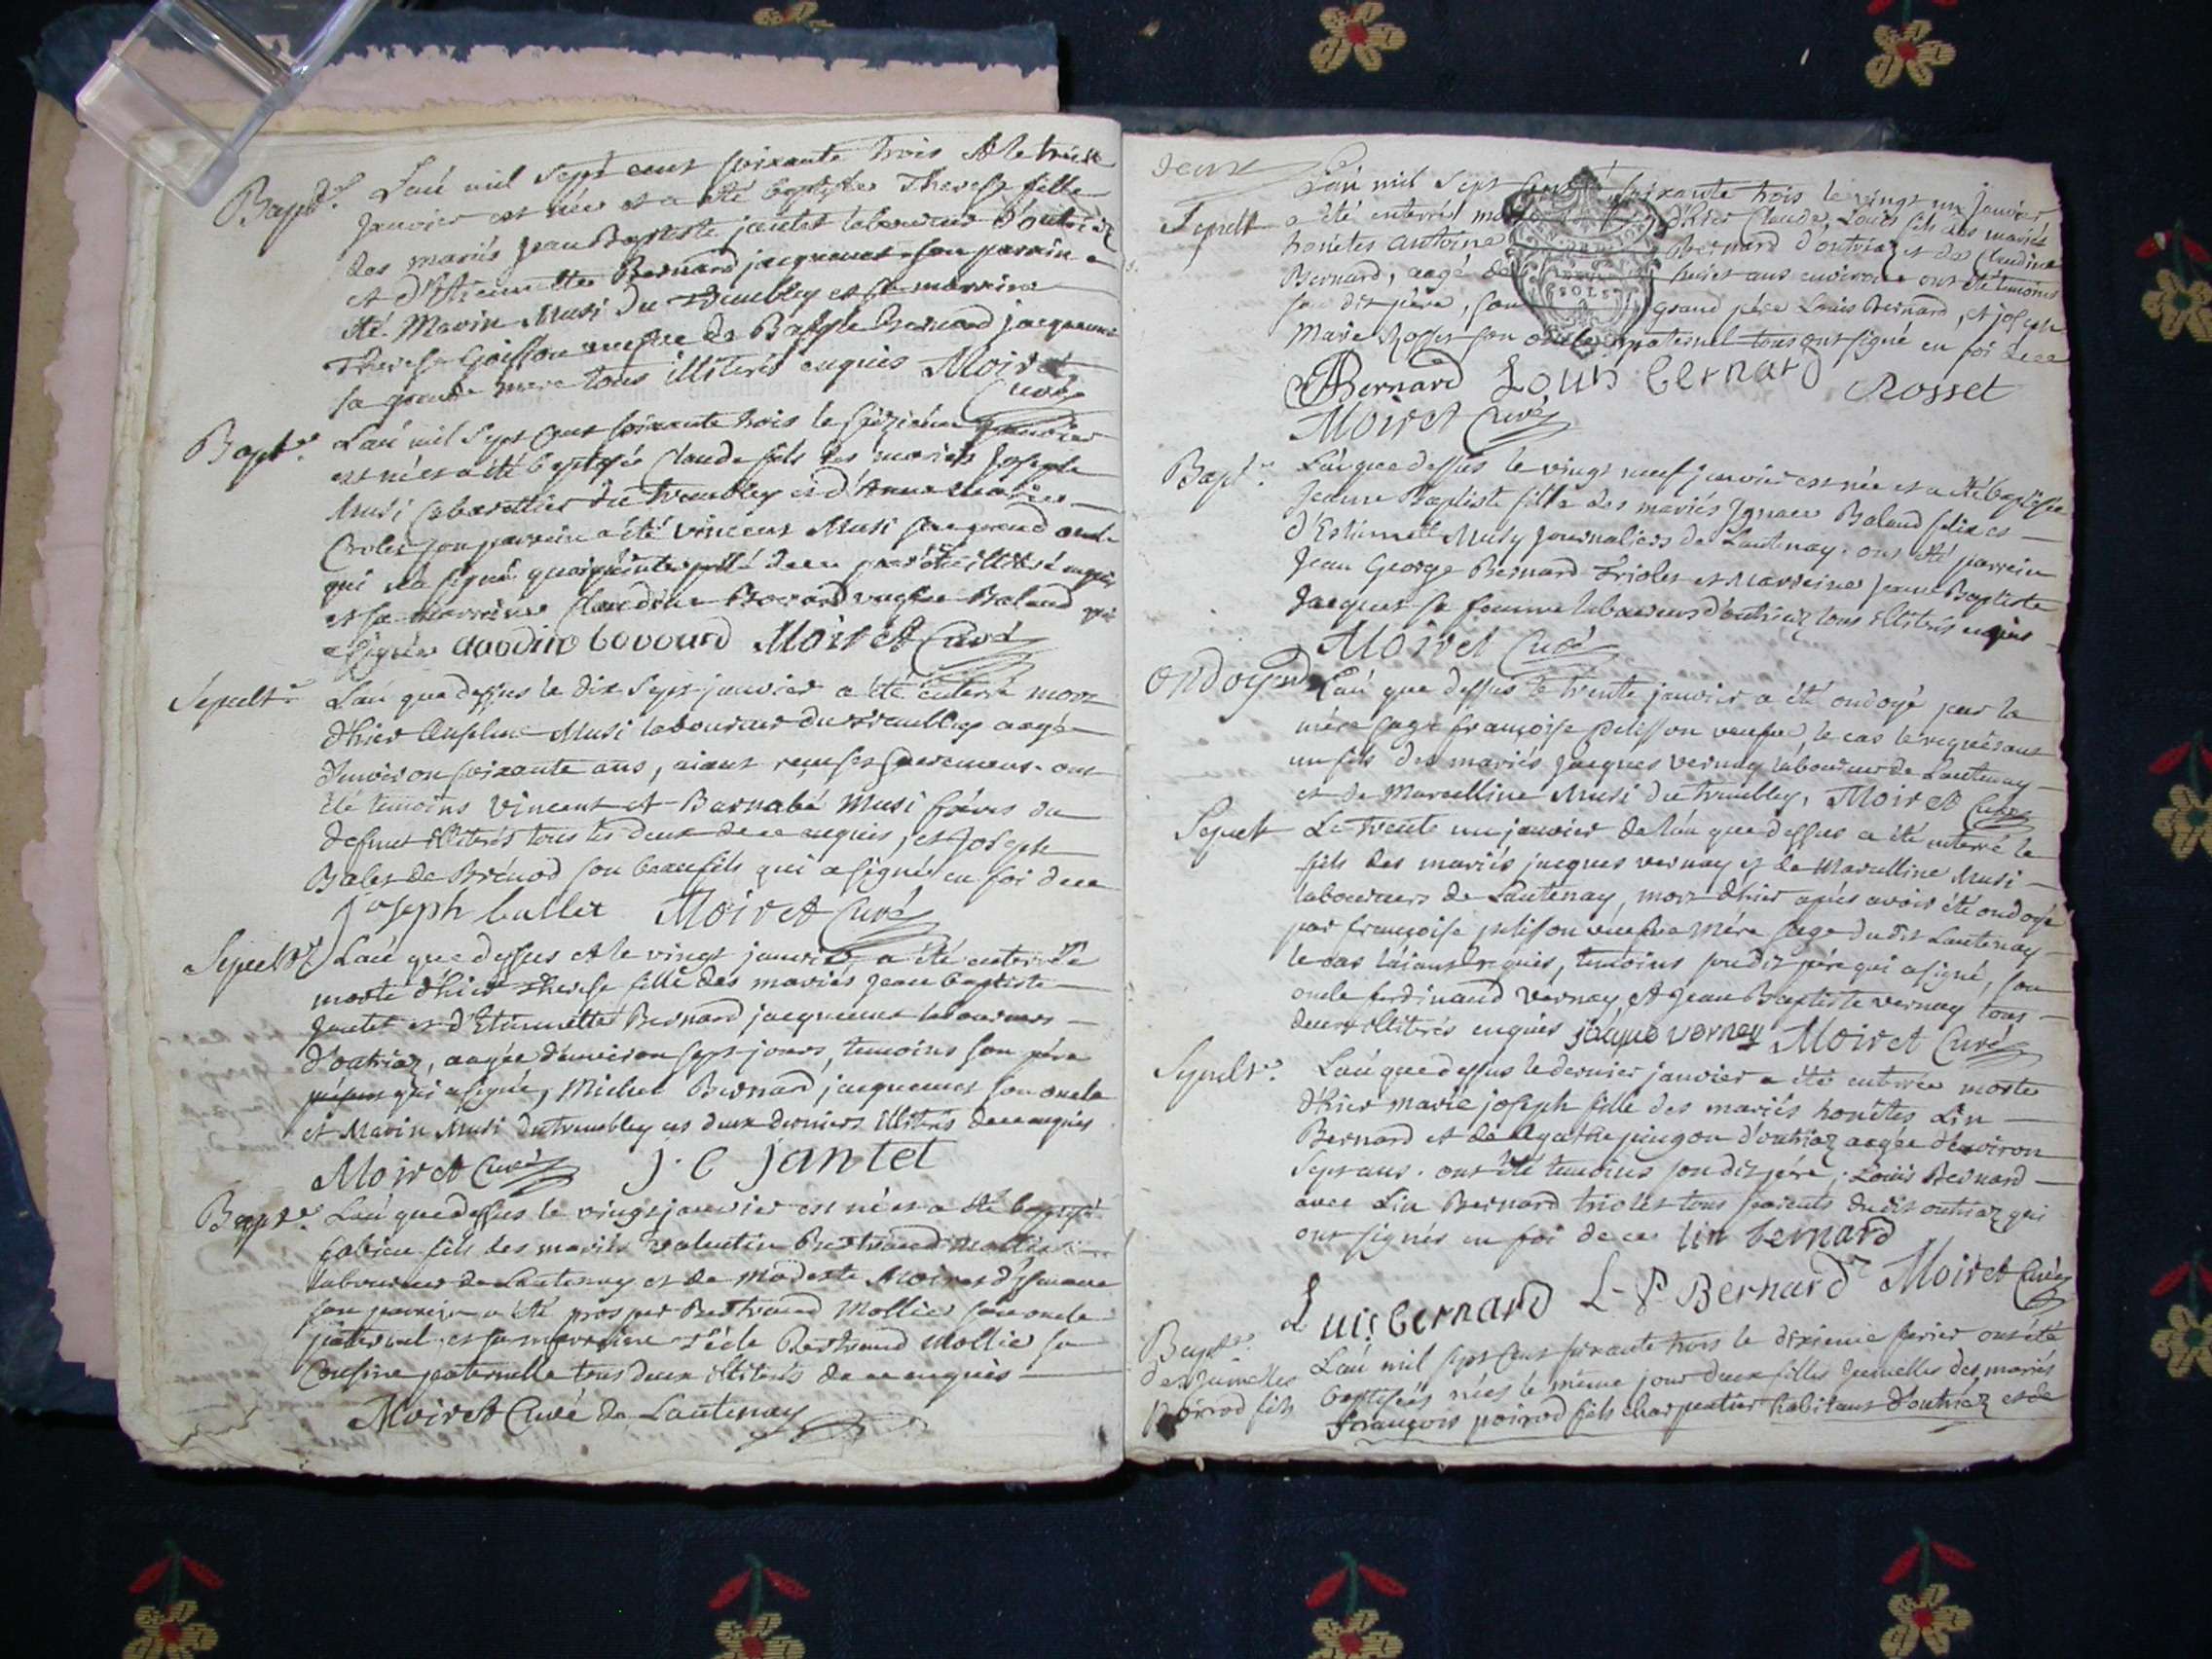 Bapt.e L'an mil sept cent soixante trois et le treize
janvier est née et a été baptisée Therese fille
des mariés Jean Baptiste jantet laboureur d'outriaz
et d'Etiennette Bernard jacquemet son parrain a
été Marin Musi du trembley et sa marraine
Therese Goiffon veufve de Bernard jacquemet
sa grande mere tous illiterés enquis Moiret
Curé
Bapt.e L'an mil sept cent soixante trois le seizième janvier
est né et a été baptisé Claude fils des mariés Joseph
Musi cabarettier du trembley et d'Anne Marie
Crolet son parrain a été vincent Musi son grand oncle
qui n'a signé enquis
et sa marraine Claudine Bovard veufve Baland qui
a signé claudine bovard Moiret Curé
Sépult.e L'an que dessus le dix sept janvier a été enterré mort
d'hier Anselme Musi laboureur du trembley aagé
d'environ soixante ans, aiant reçu ses sacremens. ont
été témoins vincent et Barnabé Musi frères du
defunt illiterés tous les deux de ce enquis, et Joseph
Balet de Brénod son beaufils qui a signé en foi de ce
joseph ballet Moiret Curé
Sepult.e L'an que dessus et le vingt janvier a été enterrée
morte d'hier Therese fille des mariés jean baptiste
Jantet et d'Etiennette Bernard jacquemet laboureurs
d'outriaz, aagée d'environ sept jours, temoins son père
présent qui a signé, Michel Bernard jacquemet son oncle
et Marin Musi du trembley ces deux derniers illiterés de ce enquis
Moiret Curé j. B jantet
Bapt.e L'an que dessus le vingt janvier est né et a été baptisé
fabien fils des mariés valentin Bertrand Mollie
laboureur de Lantenay et de Modeste Moiret d'
son parrain a été prosper Bertrand Mollie son oncle
paternel et sa marraine Bertrand Mollie sa
Cousine paternelle tous deux illiterés de ce enquis
Moiret Curé de Lantenay
deux
L'an mil sept cent soixante trois le vingt un janvier
Sepult.e a été enterré mort d'hier Claude Louis fils des mariés
honêtes antoine Bernard d'outriaz et de Claudine
Bernard, aagé de huict ans environ ont été témoins
son dit père, son grand père Louis Bernard, et joseph
Marie Rosset son oncle maternel tous ont signé en foi de ce
ABernard Louis bernard Rosset
Moiret Curé
Bapt.e L'an que dessus le vingt neuf janvier est née et a été baptisée
Jeanne Baptiste fille des mariés Ignace Baland felix et
d'Estiennette Musy journaliers de Lantenay. ont été parrein
Jean George Bernard Triolet et Marreine Jeanne Baptiste
Jacquet sa femme laboureurs d'outriaz tous illiterés enquis
Moiret Curé
ondoyé L'an que dessus le trente janvier a été ondoyé par la
mère sage françoise pelisson veufve, le cas le requérant
un fils des mariés jacques vernay laboureur de Lantenay
et de Marcelline Musi du trembley, Moiret Curé
Sepult.e Le trente un janvier de l'an que dessus a été enterré le
fils des mariés jacques vernay et de Marcelline Musi
laboureurs de Lantenay, mort d'hier après avoir été ondoyé
par françoise pelisson veufve mère sage du dit Lantenay
le cas l'aiant requis, temoins son dit père qui a signé, son
oncle ferdinand vernay et Jean Baptiste vernay tous
deux illiterés enquis jaque vernay Moiret Curé
Sepult.e L'an que dessus le dernier janvier a été enterrée morte
d'hier marie joseph fille des mariés honêtes Lin
Bernard et de Agathe pingon d'outriaz aagée d'environ
sept ans. ont été temoins son dit père, Louis Bernard
avec Lin Bernard triolet tous parents du dit outriaz qui
ont signés en foi de ce lin bernard
Luis bernard L-P Bernard Moiret Curé
Bapt.e
des Jumelles
poirod fils
L'an mil sept cent soixante trois le dixieme fevrier ont été
baptisées nées le même jour deux filles Jumelles des mariés
françois poirod fils charpentier habitant d'outriaz et de